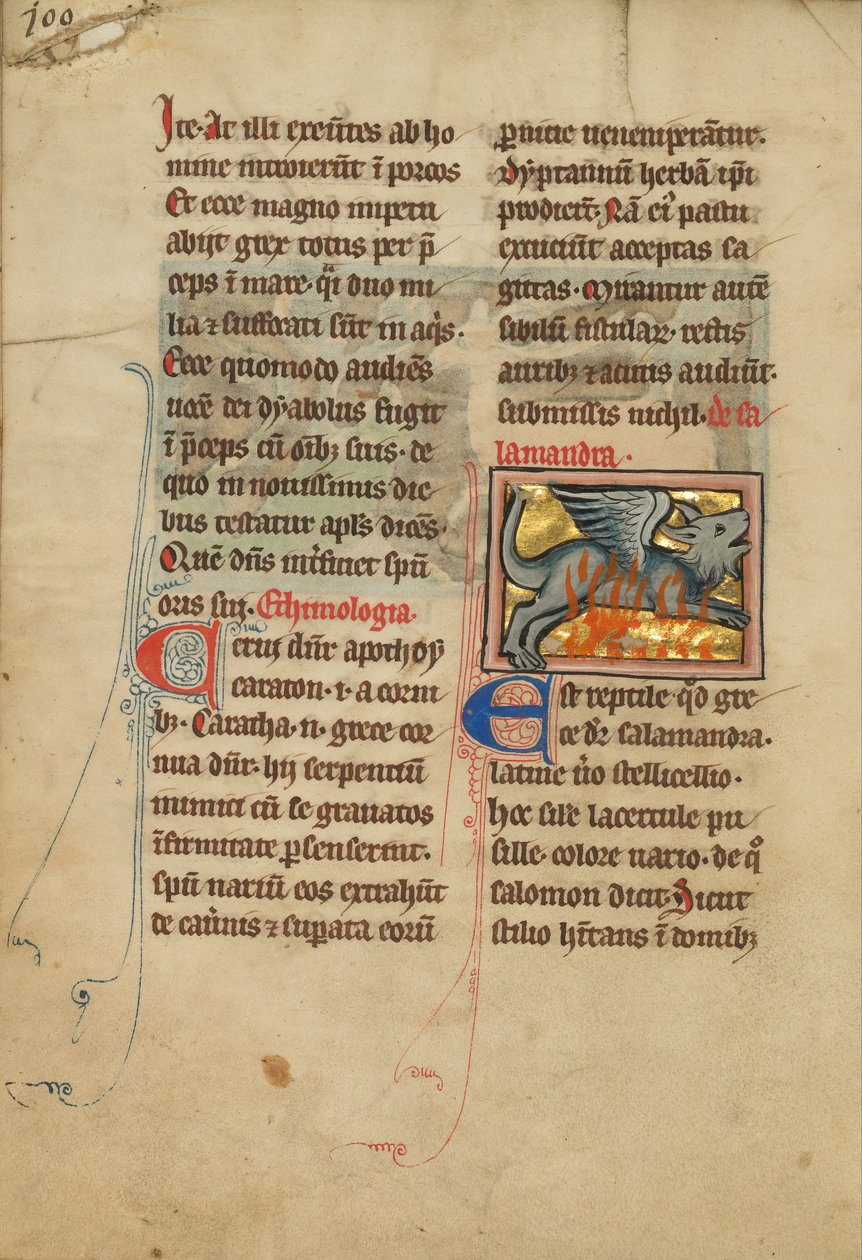 100
Ite. At illi exeu̅tes ab ho
mine intraueru̅t i̅ porcos
Et ecce magno impetu
abijt grex totus per p̅
ceps i̅ mare. qͣi duo mi
lia ⁊ suffocati su̅t in aqͥs.
Ecce quomodo audie̅s
uoce̅ dei dyabolus fugit
i̅ p̅ceps cu̅ oi̅bꝫ suis. de
quo in nouissimis die
bus testatur apl̅s dice̅s.
Que̅ dn̅s int̅ficiet spu̅
oris sui. Ethimologia.
Cerui dn̅r apoth oy
caraton. i. a corni
bꝫ. Caratha. n. grece cor
nua dn̅r. hij serpentiu̅
inimici cu̅ se grauatos
i̅firmitate p̱senserint.
spu̅ nariu̅ eos extrahu̅t
de cau̅nis ⁊ sup̱ata eoru̅
p̱nicie ueneni pera̅tur.
Dyptannu̅ herba̅ ip̅i
prodier̅t. Na̅ ei' pastu
excuciu̅t acceptas sa
gittas. Mirantur aute̅
sibilu̅ fistulaꝝ. rectis
auribꝫ ⁊ acutis audiu̅t.
submissis nichil. de sa
lamandra.
Est reptile qd̅ gre
ce dr̅ salamandra.
latine u̅o stellicellio.
hoc sil̅e lacertule pu
sille. colore uario. de qͦ
salomon dicit. Sicut
stilio h̅itans i̅ domibꝫ